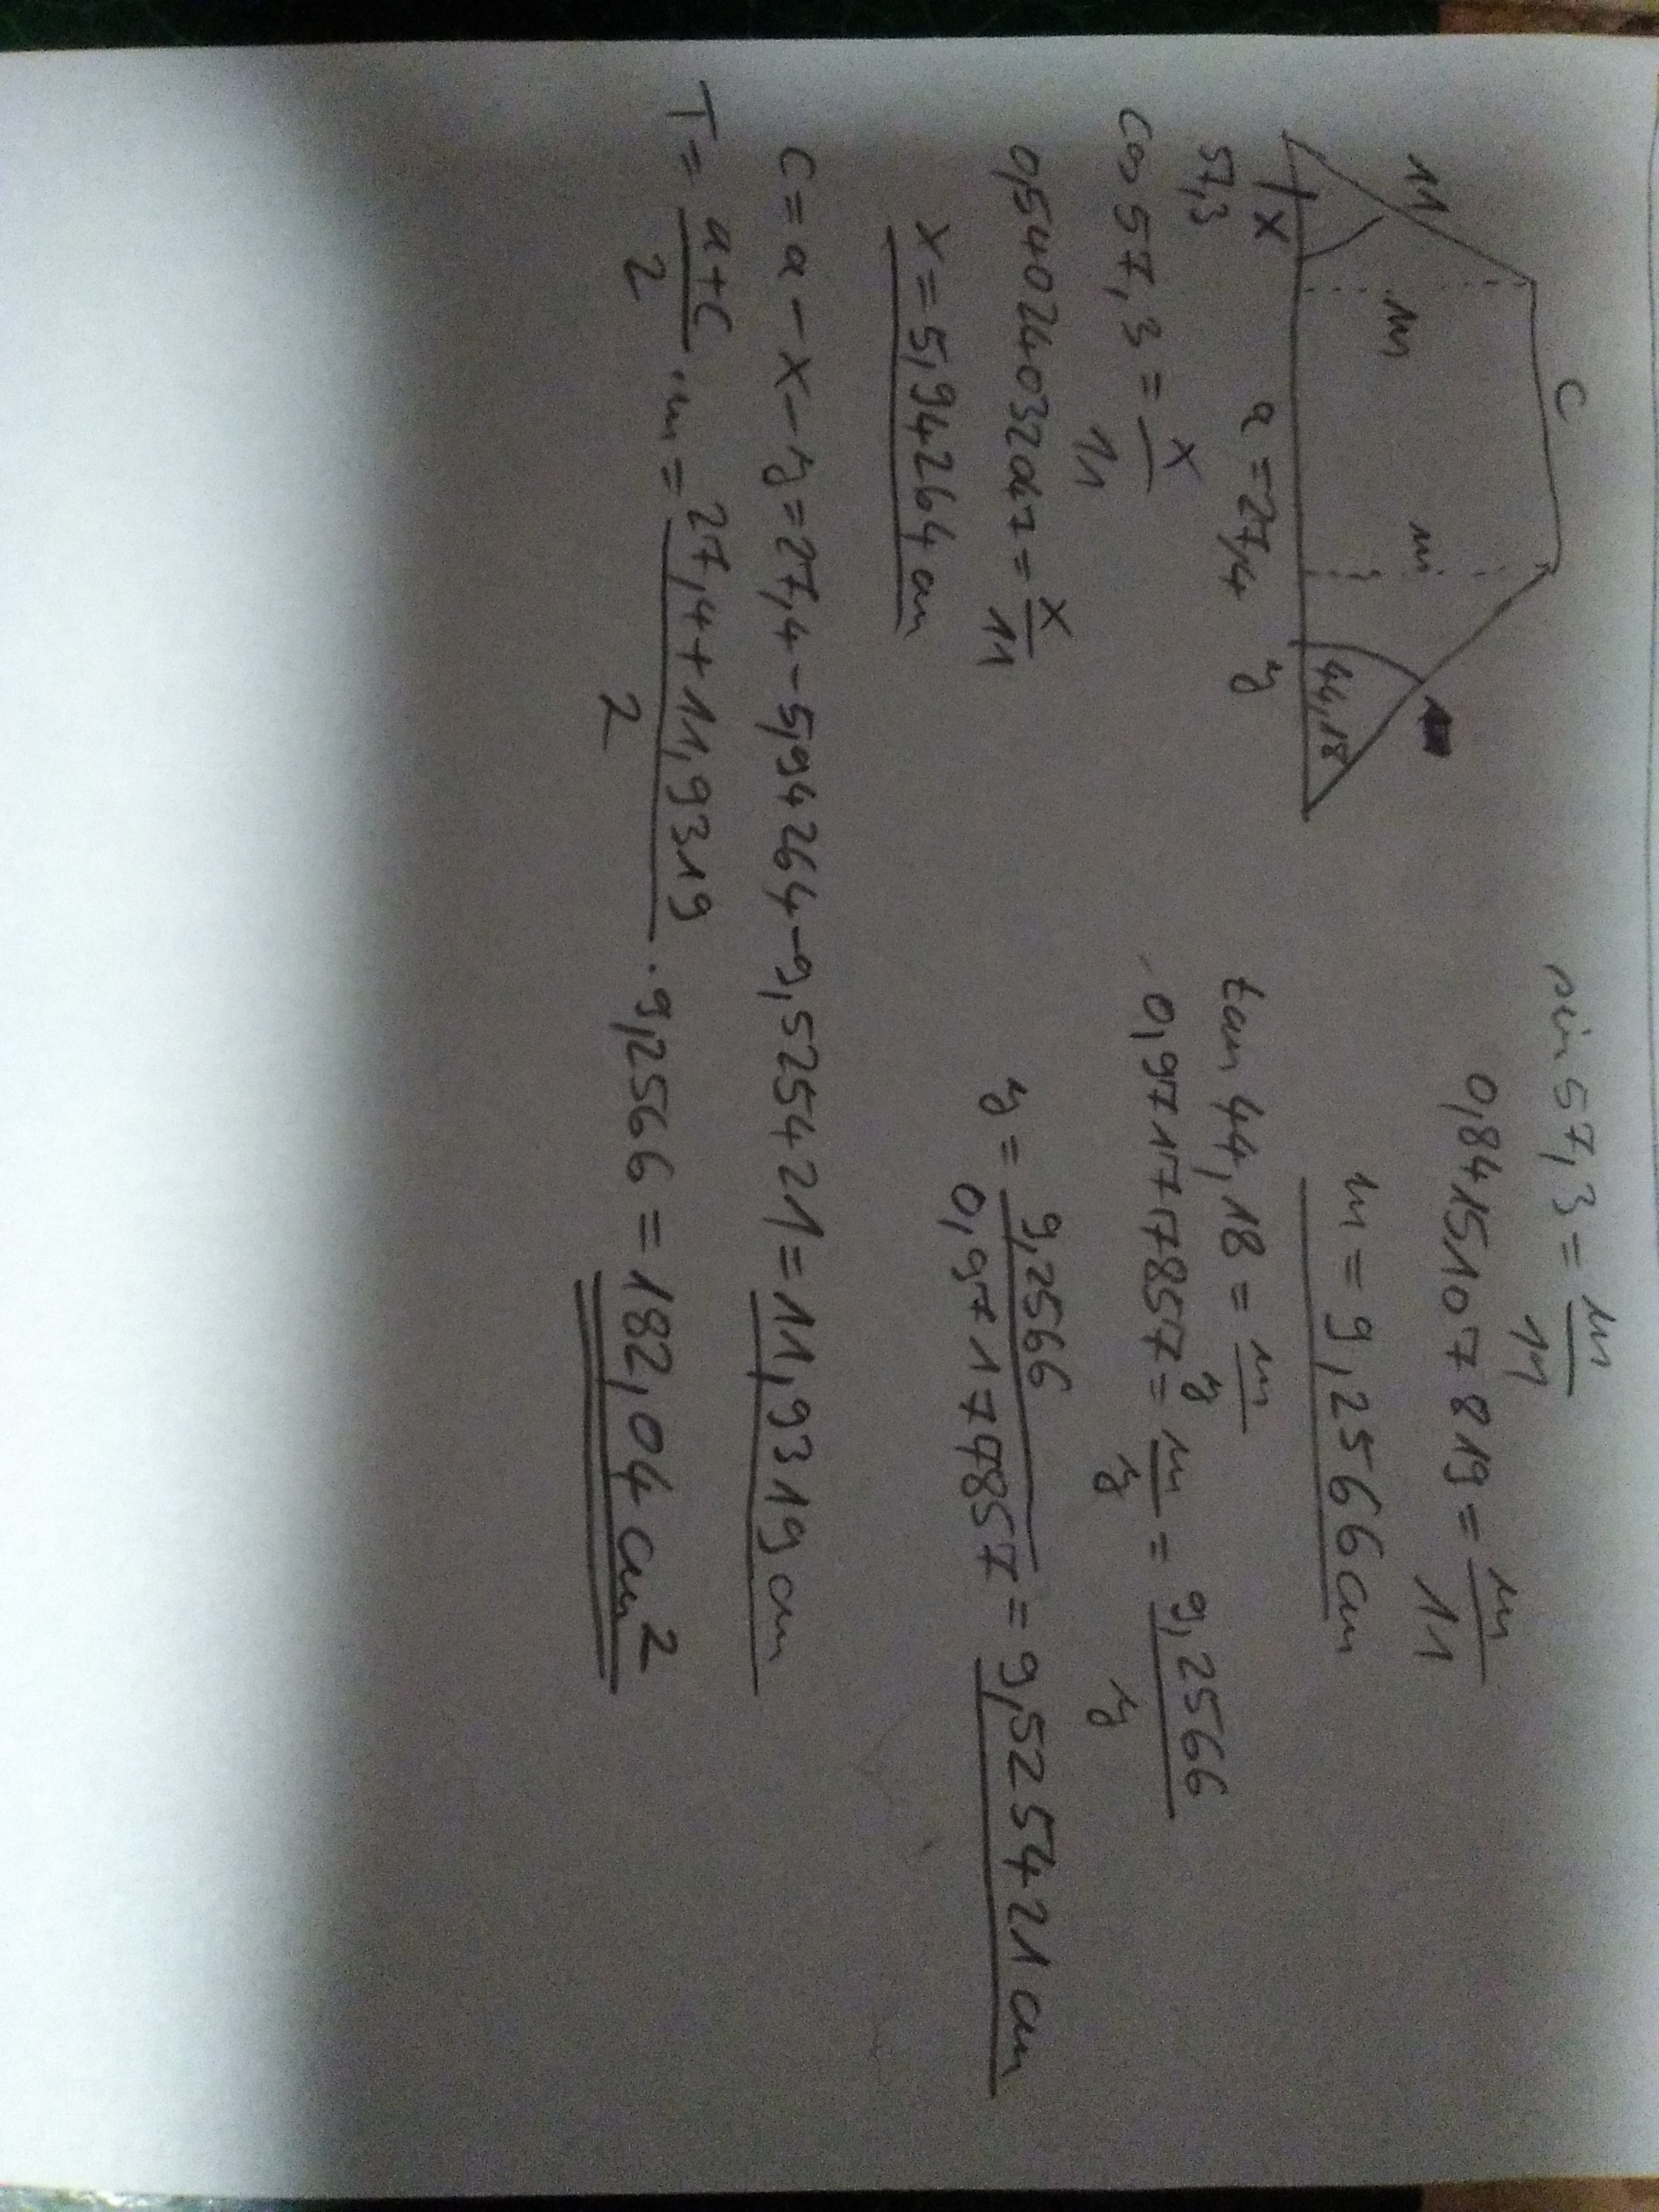 C
11
m
m
44,18
x
a = 27,4
y
57,3
sin 57,3 = m/11
0,8415107819 = m/11
m = 9,2566 cm
cos 57,3 = x/11
0,5402403204 = x/11
x = 5,94264 cm
tan 44,18 = m/y
0,971777857 = m/y = 9,2566/y
y = 9,2566/0,971777857 = 9,525421 cm
c = a - x - y = 27,4 - 5,94264 - 9,525421 = 11,9319 cm
T = a+c/2 · m = 27,4+11,9319/2 · 9,2566 = 182,04 cm²